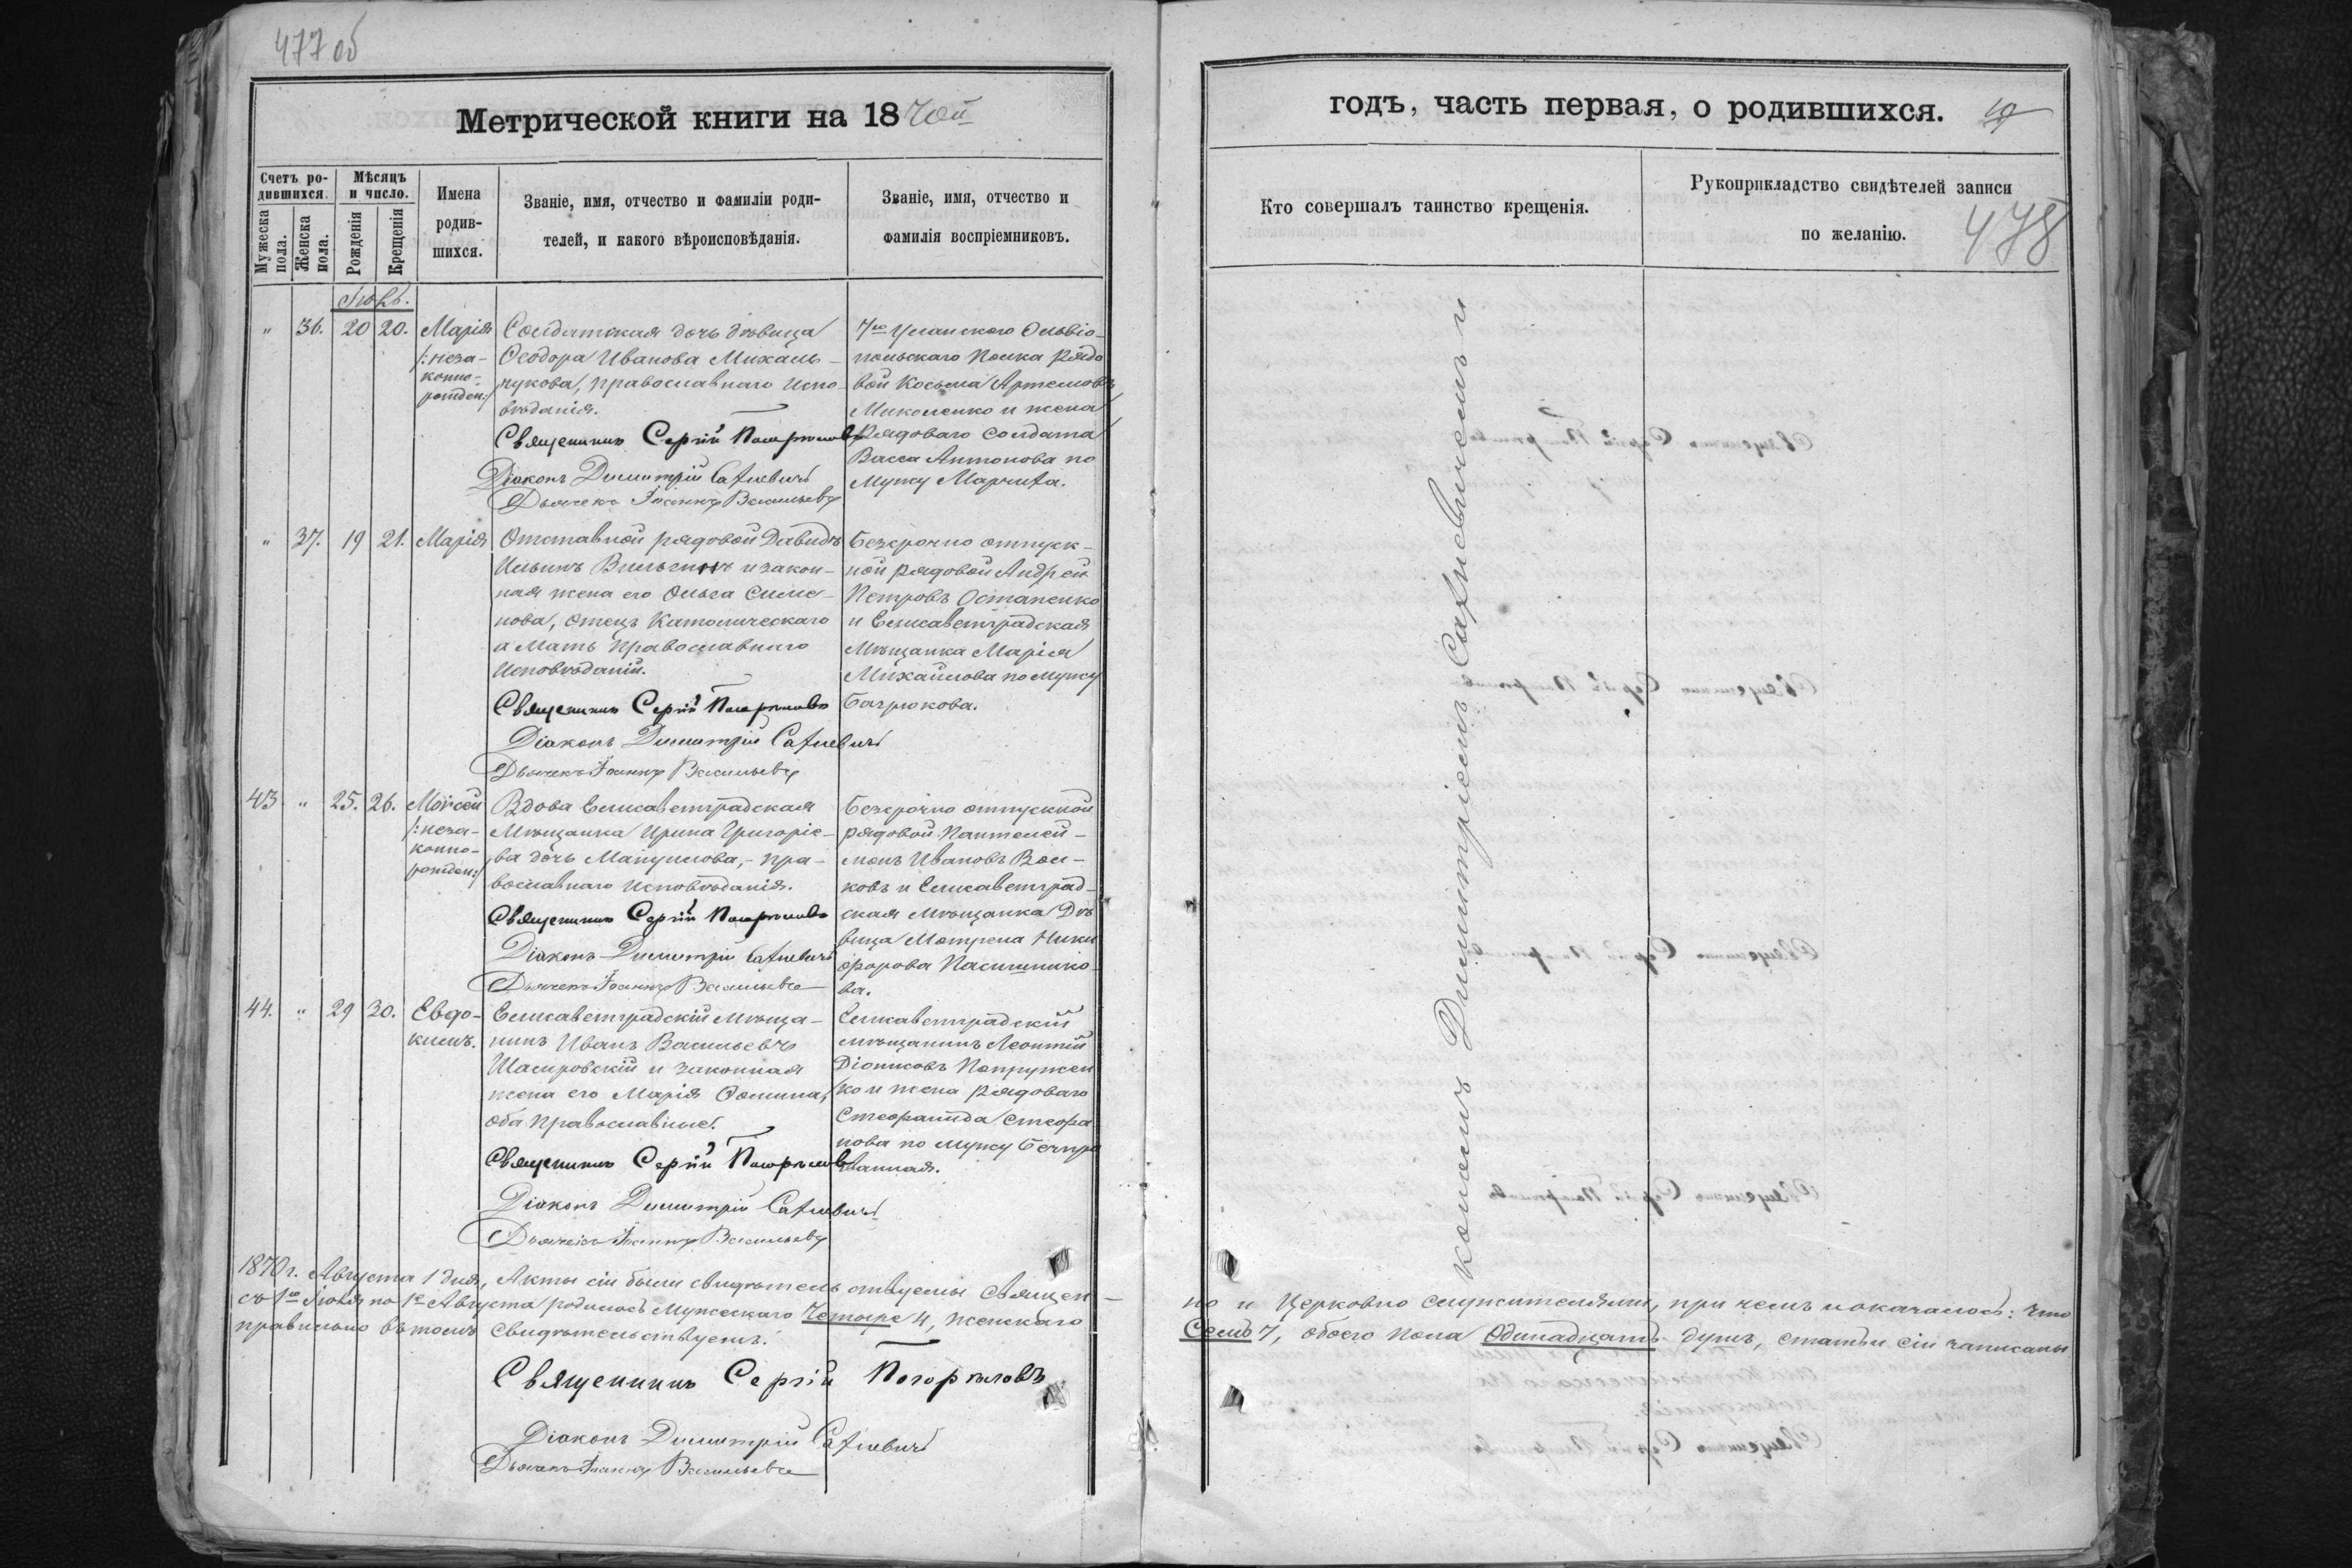 477 об
Метрической книги на 1870й
годъ, часть первая, о родившихся.
19
478
Счетъ ро-
дившихся.
Мужеска пола.
Женска пола.
Мѣсяцъ
и число.
Рожденія
Крещенія
Имена
родив-
шихся.
Званіе, имя, отчество и фамиліи роди-
телей, и какого вѣроисповѣданія.
Званіе, имя, отчество и
фамилія воспріемниковъ.
Кто совершалъ таинство крещенія.
Рукоприкладство свидѣтелей записи
по желанію.
Іюль.
" 36. 20 20. Марія
/:неза-
конно-
рожден:/
Солдатская дочь дѣвица
Ѳеодора Иванова Михаль-
чукова, православнаго испо-
вѣданія.
Священникъ Сергій Погорѣловъ
Діаконъ Димитрій Сатиевичъ
Дьячекъ Іоаннъ Васильевъ
7го Уланскаго Ольвіо-
польскаго полка рядо
вой Косьма Артемовъ
Миколенко и жена
рядоваго солдата
Васса Антонова по
мужу
" 37. 19 21. Марія
Отставной рядовой Давидъ
Ильинъ и закон-
ная жена его Ольга Симе-
нова, отецъ Католическаго
а мать православнаго
исповѣданій.
Священникъ Сергій Погорѣловъ
Діаконъ Димитрій Сатиевичъ
Дьячекъ Іоаннъ Васильевъ
Безсрочно отпуск-
ной рядовой Андрей
Петровъ Остапенко
и Елисаветградская
мѣщанка Марія
Михайлова по мужу
Багрюкова.
43 " 25. 26. Моѵсей
/:неза-
конно-
рожден:/
Вдова Елисаветградская
мѣщанка Ирина Григоріе-
ва дочь Мануилова, пра-
вославнаго исповѣданія.
Священникъ Сергій Погорѣловъ
Діаконъ Димитрій Сатиевичъ
Дьячекъ Іоаннъ Васильевъ
Безсрочно отпускной
рядовой Пантелей-
монъ Ивановъ Вол-
ковъ и Елисаветград-
ская мѣщанка дѣ
вица Матрена Ники
форова
ва.
44. " 29 30. Евдо-
кимъ.
Елисаветградскій мѣща-
нинъ Иванъ Васильевъ
Шагировскій и законная
жена его Марія Ѳомина,
оба православные.
Священникъ Сергій Погорѣловъ
Діаконъ Димитрій Сатиевичъ
Дьячекъ Іоаннъ Васильевъ
Елисаветградскій
мѣщанинъ Леонтій
Діонисовъ Попружен
ко и жена рядоваго
Стефанида Стефа
нова по мужу
1870 г. Августа 1 дня, Акты сіи были свидѣтельствуемы священ-
но и Церковно служителями, при чемъ показалось: что
съ 1го Іюля по 1е Августа родилось мужескаго Четыре 4, женскаго
Семь 7, обоего пола Одинадцать душъ, статьи сіи записаны
правильно въ томъ свидѣтельствуемъ.
Священникъ Сергій Погорѣловъ
Діаконъ Димитрій Сатиевичъ
Дьячекъ Іоаннъ Васильевъ
кономъ Димитріемъ Сатиевичемъ и